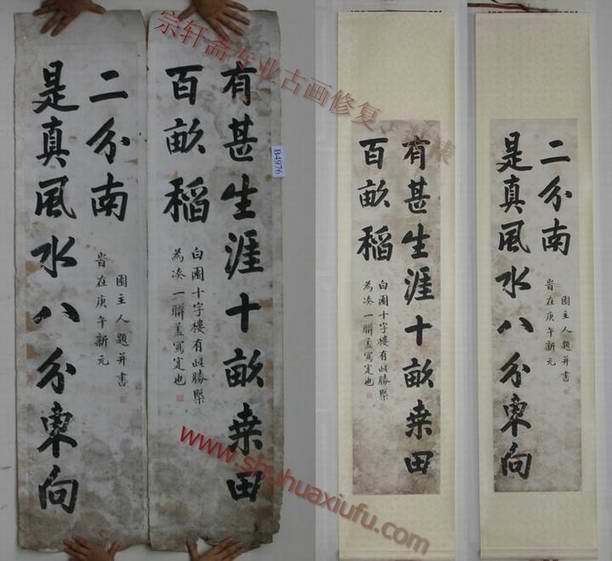 宗轩斋专业古画修复
有甚生涯十畝桒田
百畝稻
白圃十字樓有此勝槩
為湊一聯盖寫寔也
是真風水八分東向
二分南
旹在庚午新元
園主人題并書
B4976
有甚生涯十畝桒田
百畝稻
白圃十字樓有此勝槩
為湊一聯盖寫寔也
是真風水八分東向
二分南
旹在庚午新元
園主人題并書
www.shuhuaxiufu.com